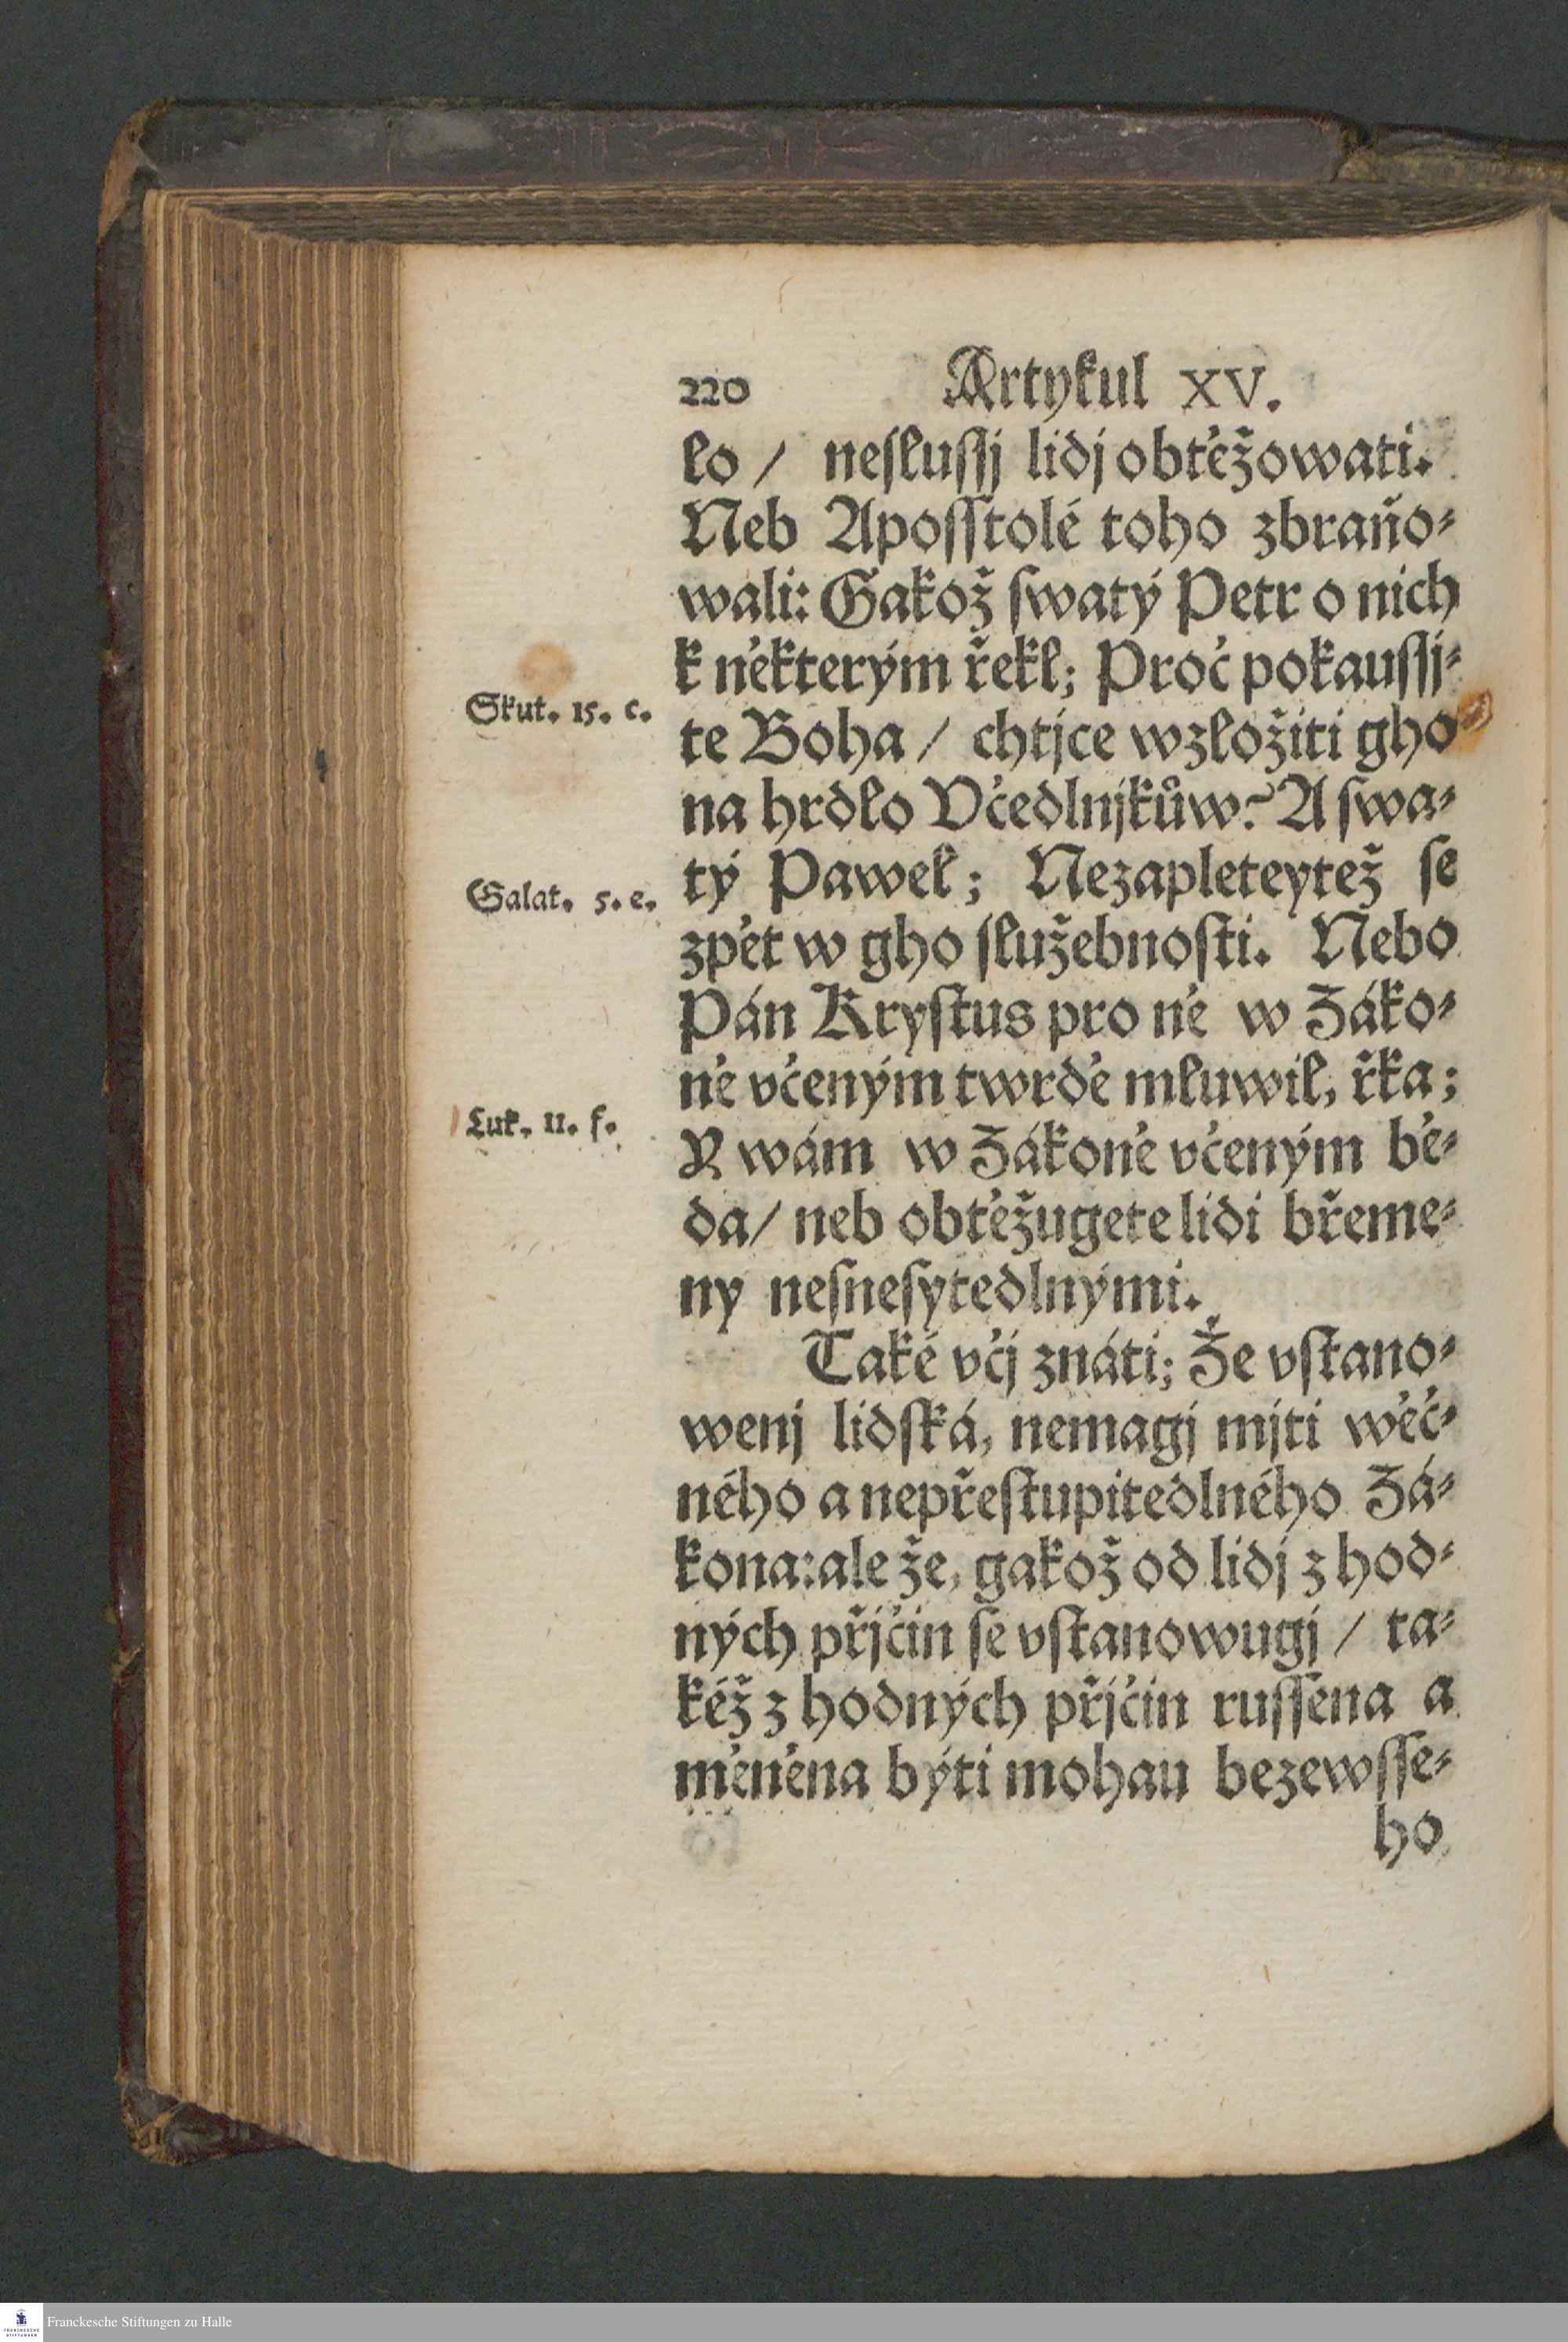 220 Artykul XV.
lo / neſluſſj lidj obtěžowati.
Neb Apoſſtolé toho zbraňo⸗
wali: Gakož ſwatý Petr o nich
k některým řekl; Proč pokauſſj⸗
Skut. 15. c.
te Boha / chtjce wzložiti gho
na hrdlo Včedlnjkůw? A ſwa⸗
Galat. 5. e.
tý Pawel; Nezapleteytež ſe
zpět w gho ſlužebnoſti. Nebo
Pán Kryſtus pro ně w Záko⸗
ně včeným twrdě mluwil, řka;
Luk. 11. f.
Y wám w Zákoně včeným bě⸗
da / neb obtěžugete lidi břeme⸗
ny neſneſytedlnými.
Také včj znáti; Že vſtano⸗
wenj lidſká, nemagj mjti wěč⸗
ného a nepřeſtupitedlného Zá⸗
kona: ale že, gakož od lidj z hod⸗
ných přjčin ſe vſtanowugj / ta⸗
kéž z hodných přjčin ruſſena a
měněna býti mohau bezewſſe⸗
ho
Franckesche Stiftungen zu Halle